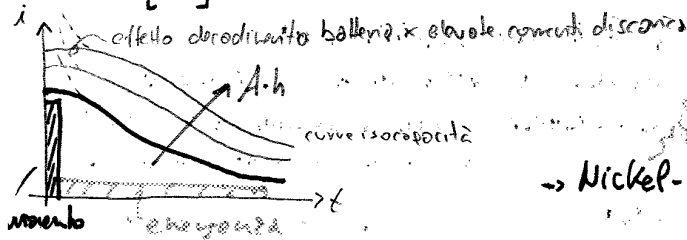 i
effetto decadimento batteria x elevate correnti discarica
A·h
curve isocapacità
t
→ Nickel-
emergenza